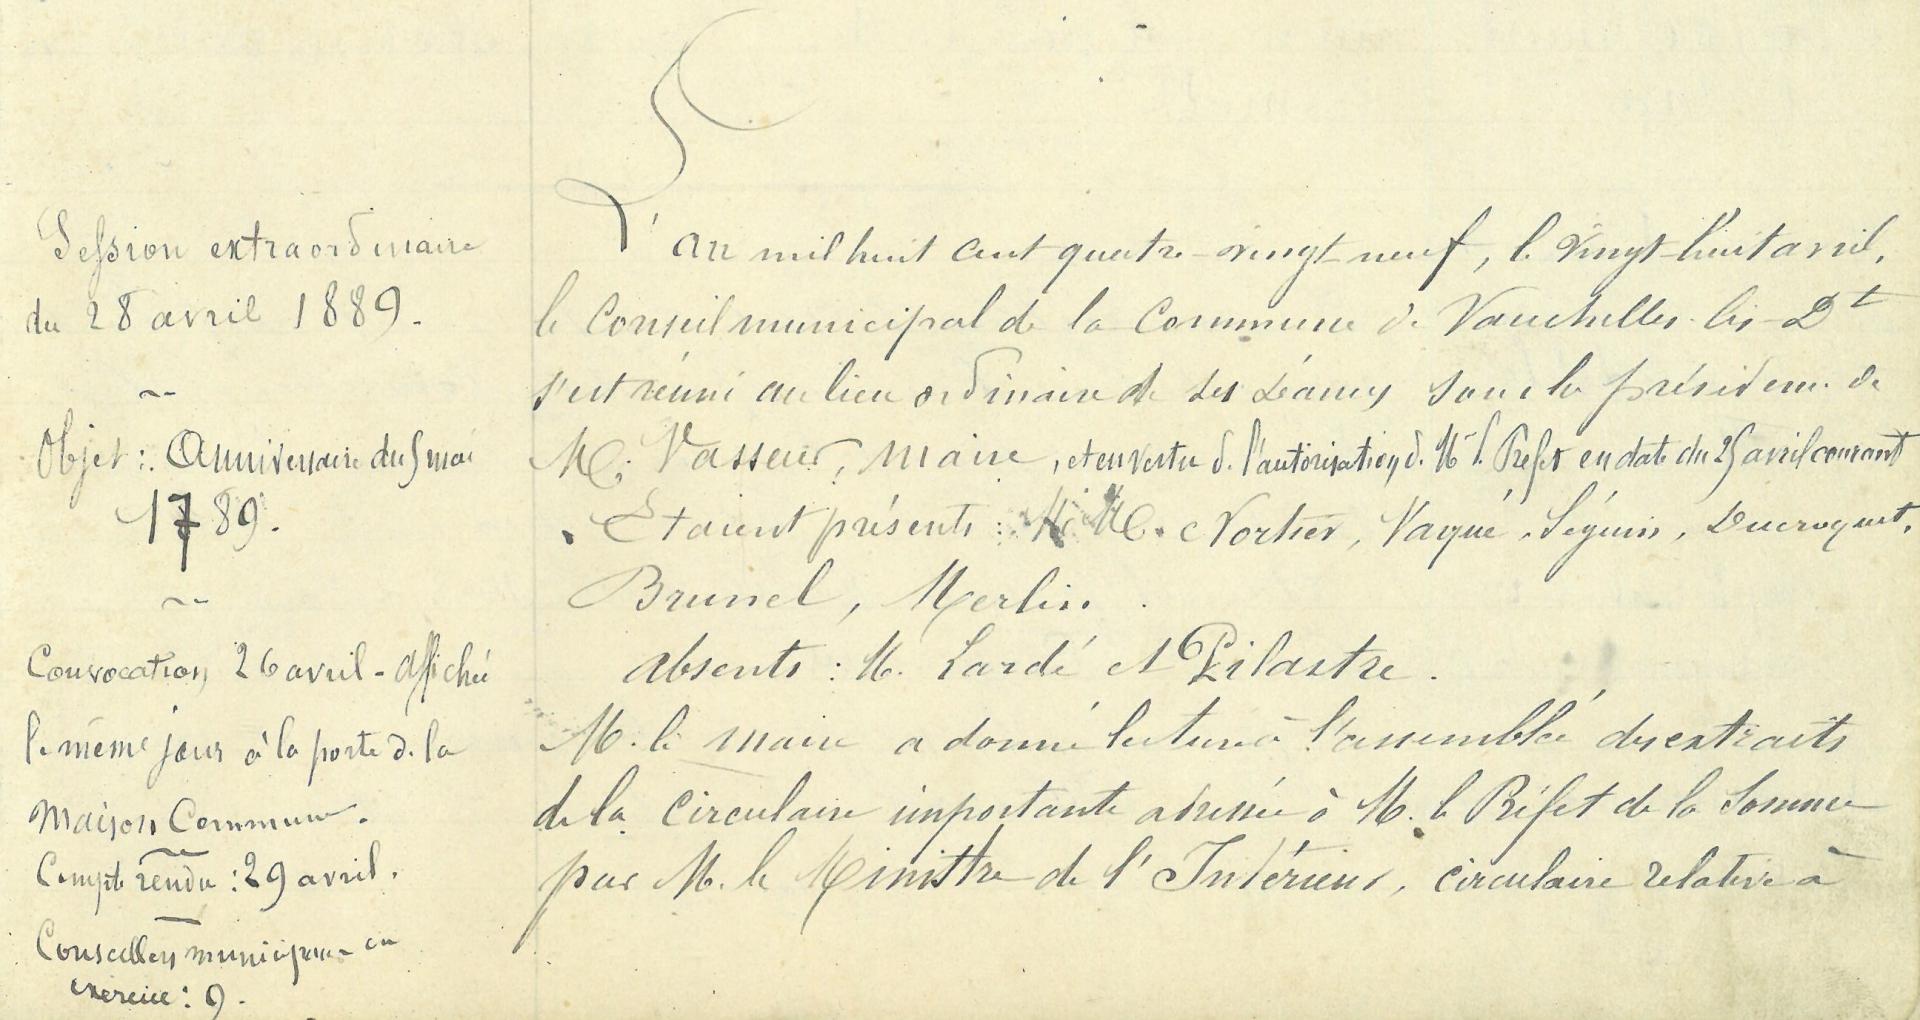 Session extraordinaire
du 28 avril 1889.
Objet : Anniversaire du 5 mai
1789.
Convocation 26 avril - affichée
le même jour à la porte de la
Maison Commune.
Compte rendu : 29 avril.
Conseillers municipaux en
exercice : 9.
L'an mil huit cent quatre-vingt-neuf, le vingt-huit avril,
le Conseil municipal de la Commune de Vauchelles-lès-Dt
s'est réuni au lieu ordinaire de ses séances sous la présidence de
M. Vasseur, maire, et en vertu de l'autorisation de Mr le Préfet en date du 25 avril courant
Etaient présents : M.M. Nortier, Vaqué, Séguin, Ducroquet,
Brunel, Merlin.
absents : M. Lardé et Pilastre.
M. le maire a donné lecture à l'assemblée des extraits
de la circulaire importante adressée à M. le Préfet de la Somme
par M. le Ministre de l'Intérieur, circulaire relative à